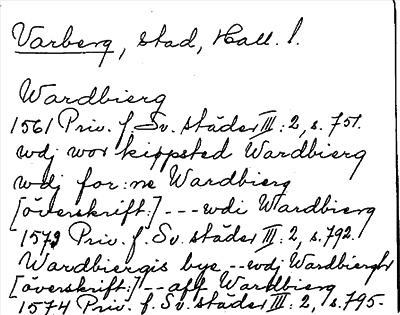 Varberg, stad, Hall. l.
Wardbierg
1561 Priv. f. Sv. städer III: 2, s. 751.
wdj wor kippsted Wardbierg
wdj for:ne Wardbierg
[överskrift:] --- wdi Wardbierg
1573 Priv. f. Sv. städer III: 2, s. 792.
Wardbiergis bye -- wdj Wardbiergh
[överskrift:] -- aff Wardbierg
1574 Priv. f. Sv. städer III: 2, s. 795.